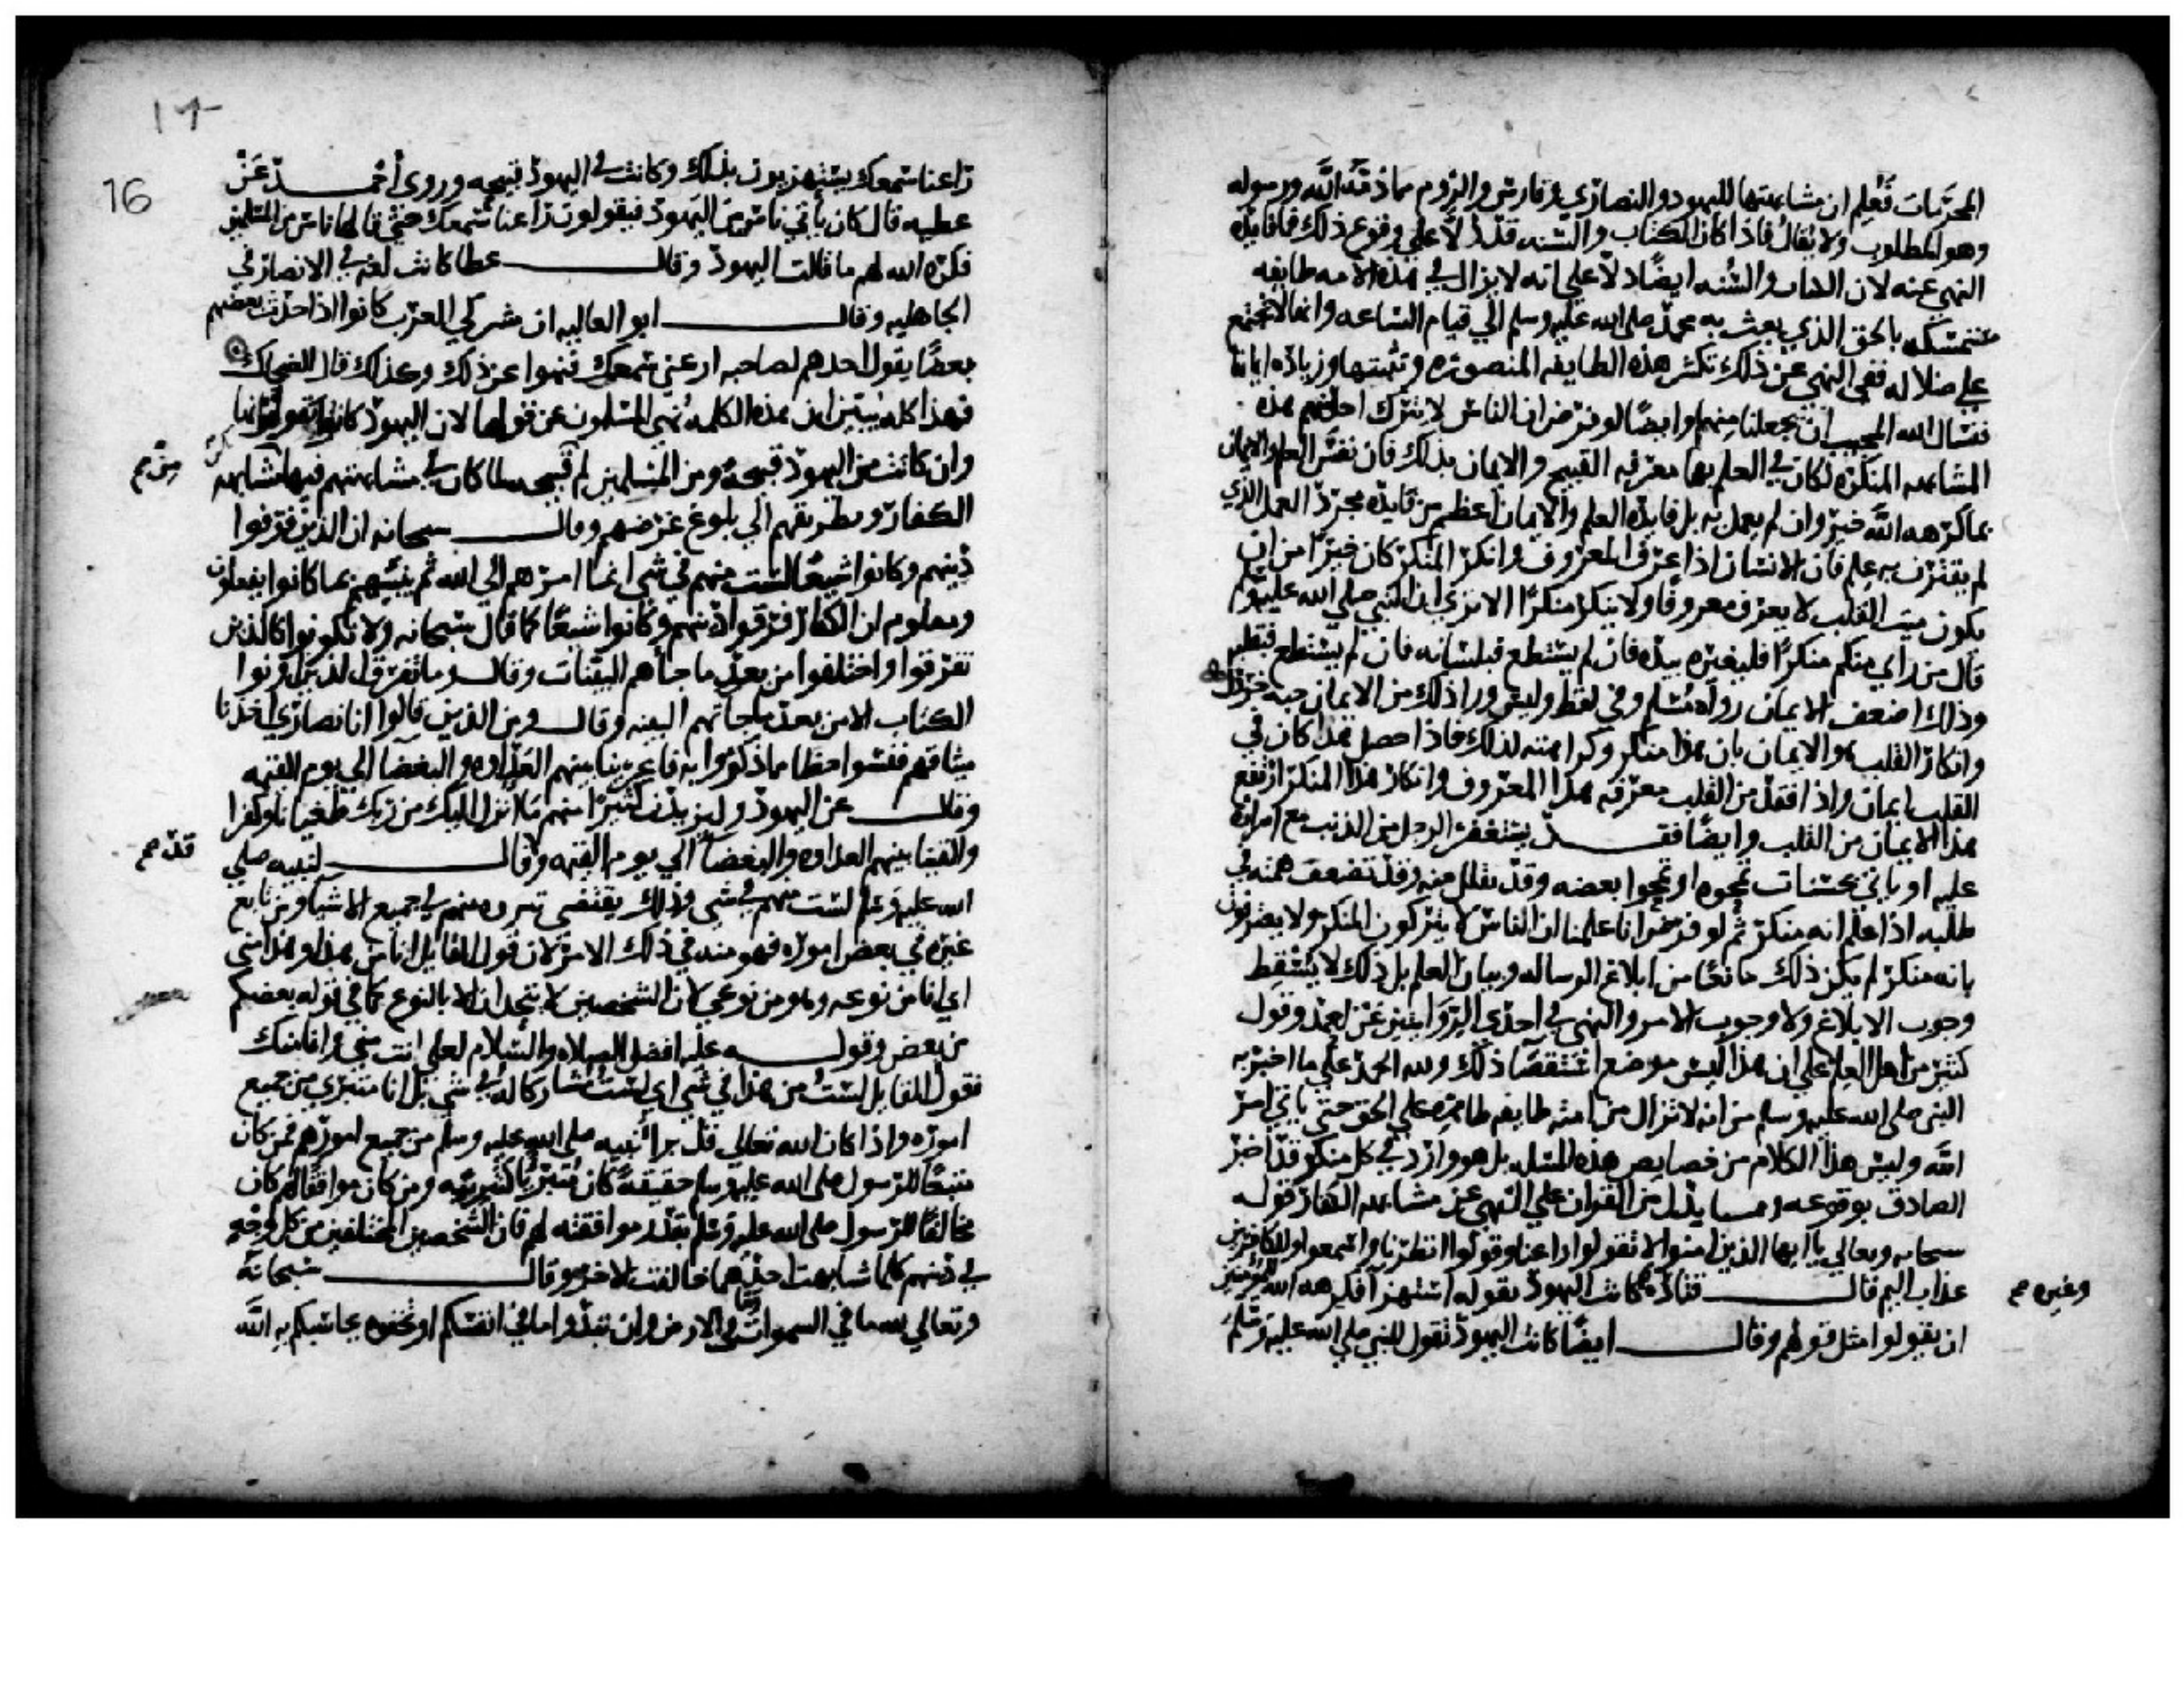 المحرمات فعلم ان مشابهتها لليهود والنصارى وفارس والروم مما ذمه الله ورسوله
وهو المطلوب ولا يقال فاذا كان الكتاب والسنه قد دلا على وقوع ذلك فما فايده
النهي عنه لان الكتاب والسنه ايضا دلا على انه لا يزال في هذه الامه طايفه
متمسكه بالحق الذي بعث به محمد صلى الله عليه وسلم الى قيام الساعه وانها لا تجتمع
على ضلاله ففي النهي عن ذلك تكثير هذه الطايفه المنصوره وتثبيتها وزياده ايمانها
فنسال الله المجيب ان يجعلنا منهم وايضا لو فرض ان الناس لا يترك احد منهم هذه
المشابهه المنكره لكان في العلم بها معرفه القبيح والايمان بذلك فان نفس العلم والايمان
بما كرهه الله خير وان لم يعمل به بل فايده العلم والايمان اعظم من فايده مجرد العمل الذي
لم يقترن به علم فان الانسان اذا عرف المعروف وانكر المنكر كان خيرا من ان
يكون ميت القلب لا يعرف معروفا ولا ينكر منكرا الا ترى ان النبي صلى الله عليه وسلم
قال من راى منكم منكرا فليغيره بيده فان لم يستطع فبلسانه فان لم يستطع فبقلبه
وذلك اضعف الايمان رواه مسلم وفي لفظ وليس ورا ذلك من الايمان حبه خردل
وانكار القلب والايمان بان هذا منكر وكراهته لذلك فاذا حصل هذا كان في
القلب ايمان واذا فقد من القلب معرفه هذا المعروف وانكار هذا المنكر ارتفع
هذا الايمان من القلب وايضا فقد يستغفر الرجل من الذنب مع اصراره
عليه او ياتي بحسنات تمحوه او تمحوا بعضه وقد يقلل منه وقد تضعف همته في
طلبه اذا علم انه منكر ثم لو فرض انا علمنا ان الناس لا يتركون المنكر ولا يعترفون
بانه منكر لم يكن ذلك مانعا من ابلاغ الرساله وبيان العلم بل ذلك لا يسقط
وجوب الابلاغ ولا وجوب الامر والنهي في احدى الروايتين عن احمد وقول
كثير من اهل العلم على ان هذا ليس موضع استقصا ذلك ولله الحمد على ما اخبر به
النبي صلى الله عليه وسلم من انه لا تزال من امته طايفه ظاهره على الحق حتى ياتي امر
الله وليس هذا الكلام من خصايص هذه المسله بل هو وارد في كل منكر قد اخبر
الصادق بوقوعه ومما يدل من القران على النهي عن مشابهه الكفار قوله
سبحانه وتعالى يا ايها الذين امنوا لا تقولوا راعنا وقولوا انظرنا واسمعوا وللكافرين
عذاب اليم قال قتاده كانت اليهود تقوله استهزا فكره الله للمومنين
وغيره صح
ان يقولوا مثل قولهم وقال ايضا كانت اليهود تقول للنبي صلى الله عليه وسلم
١٦
16
راعنا سمعك يستهزيون بذلك وكانت في اليهود قبيحه وروى احمد عن
عطيه قال كان ياتي ناس من اليهود فيقولون راعنا سمعك حتى قالها ناس من المسلمين
فكره الله لهم ما قالت اليهود وقال عطا كانت لغه في الانصار في
الجاهليه وقال ابو العاليه ان مشركي العرب كانوا اذا حدث بعضهم
بعضا يقول احدهم لصاحبه ارعني سمعك فنهوا عن ذلك وكذلك قال الضحاك
فهذا كله يبين ان هذه الكلمه نهي المسلمون عن قولها لان اليهود كانوا يقولونها
وان كانت من اليهود قبيحه ومن المسلمين لم تكن قبيحه لما كان في مشابهتهم فيها مشابهه
من صح
الكفار وبطريقهم الى بلوغ غرضهم وقال سبحانه ان الذين فرقوا
دينهم وكانوا شيعا لست منهم في شي انما امرهم الى الله ثم ينبيهم بما كانوا يفعلون
ومعلوم ان الكفار فرقوا دينهم وكانوا شيعا كما قال سبحانه ولا تكونوا كالذين
تفرقوا واختلفوا من بعد ما جاهم البينات وقال وما تفرق الذين اوتوا
الكتاب الا من بعد ما جاتهم البينه وقال ومن الذين قالوا انا نصارى اخذنا
ميثاقهم فنسوا حظا مما ذكروا به فاغرينا بينهم العداوه والبغضا الى يوم القيمه
وقال عن اليهود وليزيدن كثيرا منهم ما انزل اليك من ربك طغيانا وكفرا
والقينا بينهم العداوه والبغضا الى يوم القيمه وقال لنبيه صلى
قد صح
الله عليه وسلم لست منهم في شي وذلك يقتضي تبروه منهم في جميع الاشيا ومن تابع
غيره في بعض اموره فهو منه في ذلك الامر لان قول القايل انا من هذا وهذا مني
اي انا من نوعه وهو من نوعي لان الشخصين لا يتحدان الا بالنوع كما في قوله بعضكم
من بعض وقوله عليه افضل الصلاه والسلام لعلي انت مني وانا منك
فقول القايل لست من هذا في شي اي لست مشاركا له في شي بل انا متبري من جميع
اموره واذا كان الله تعالى قد برا نبيه صلى الله عليه وسلم من جميع امورهم فمن كان
متبعا للرسول صلى الله عليه وسلم حقيقة كان متبريا كتبريه ومن كان موافقا لهم كان
مخالفا للرسول صلى الله عليه وسلم بقدر موافقته لهم فان الشخصين المختلفين من كل وجه
في دينهم كلما شابهت احدهما خالفت الاخر وقال سبحانه
وتعالى لله ما في السموات وما في الارض وان تبدوا ما في انفسكم او تخفوه يحاسبكم به الله